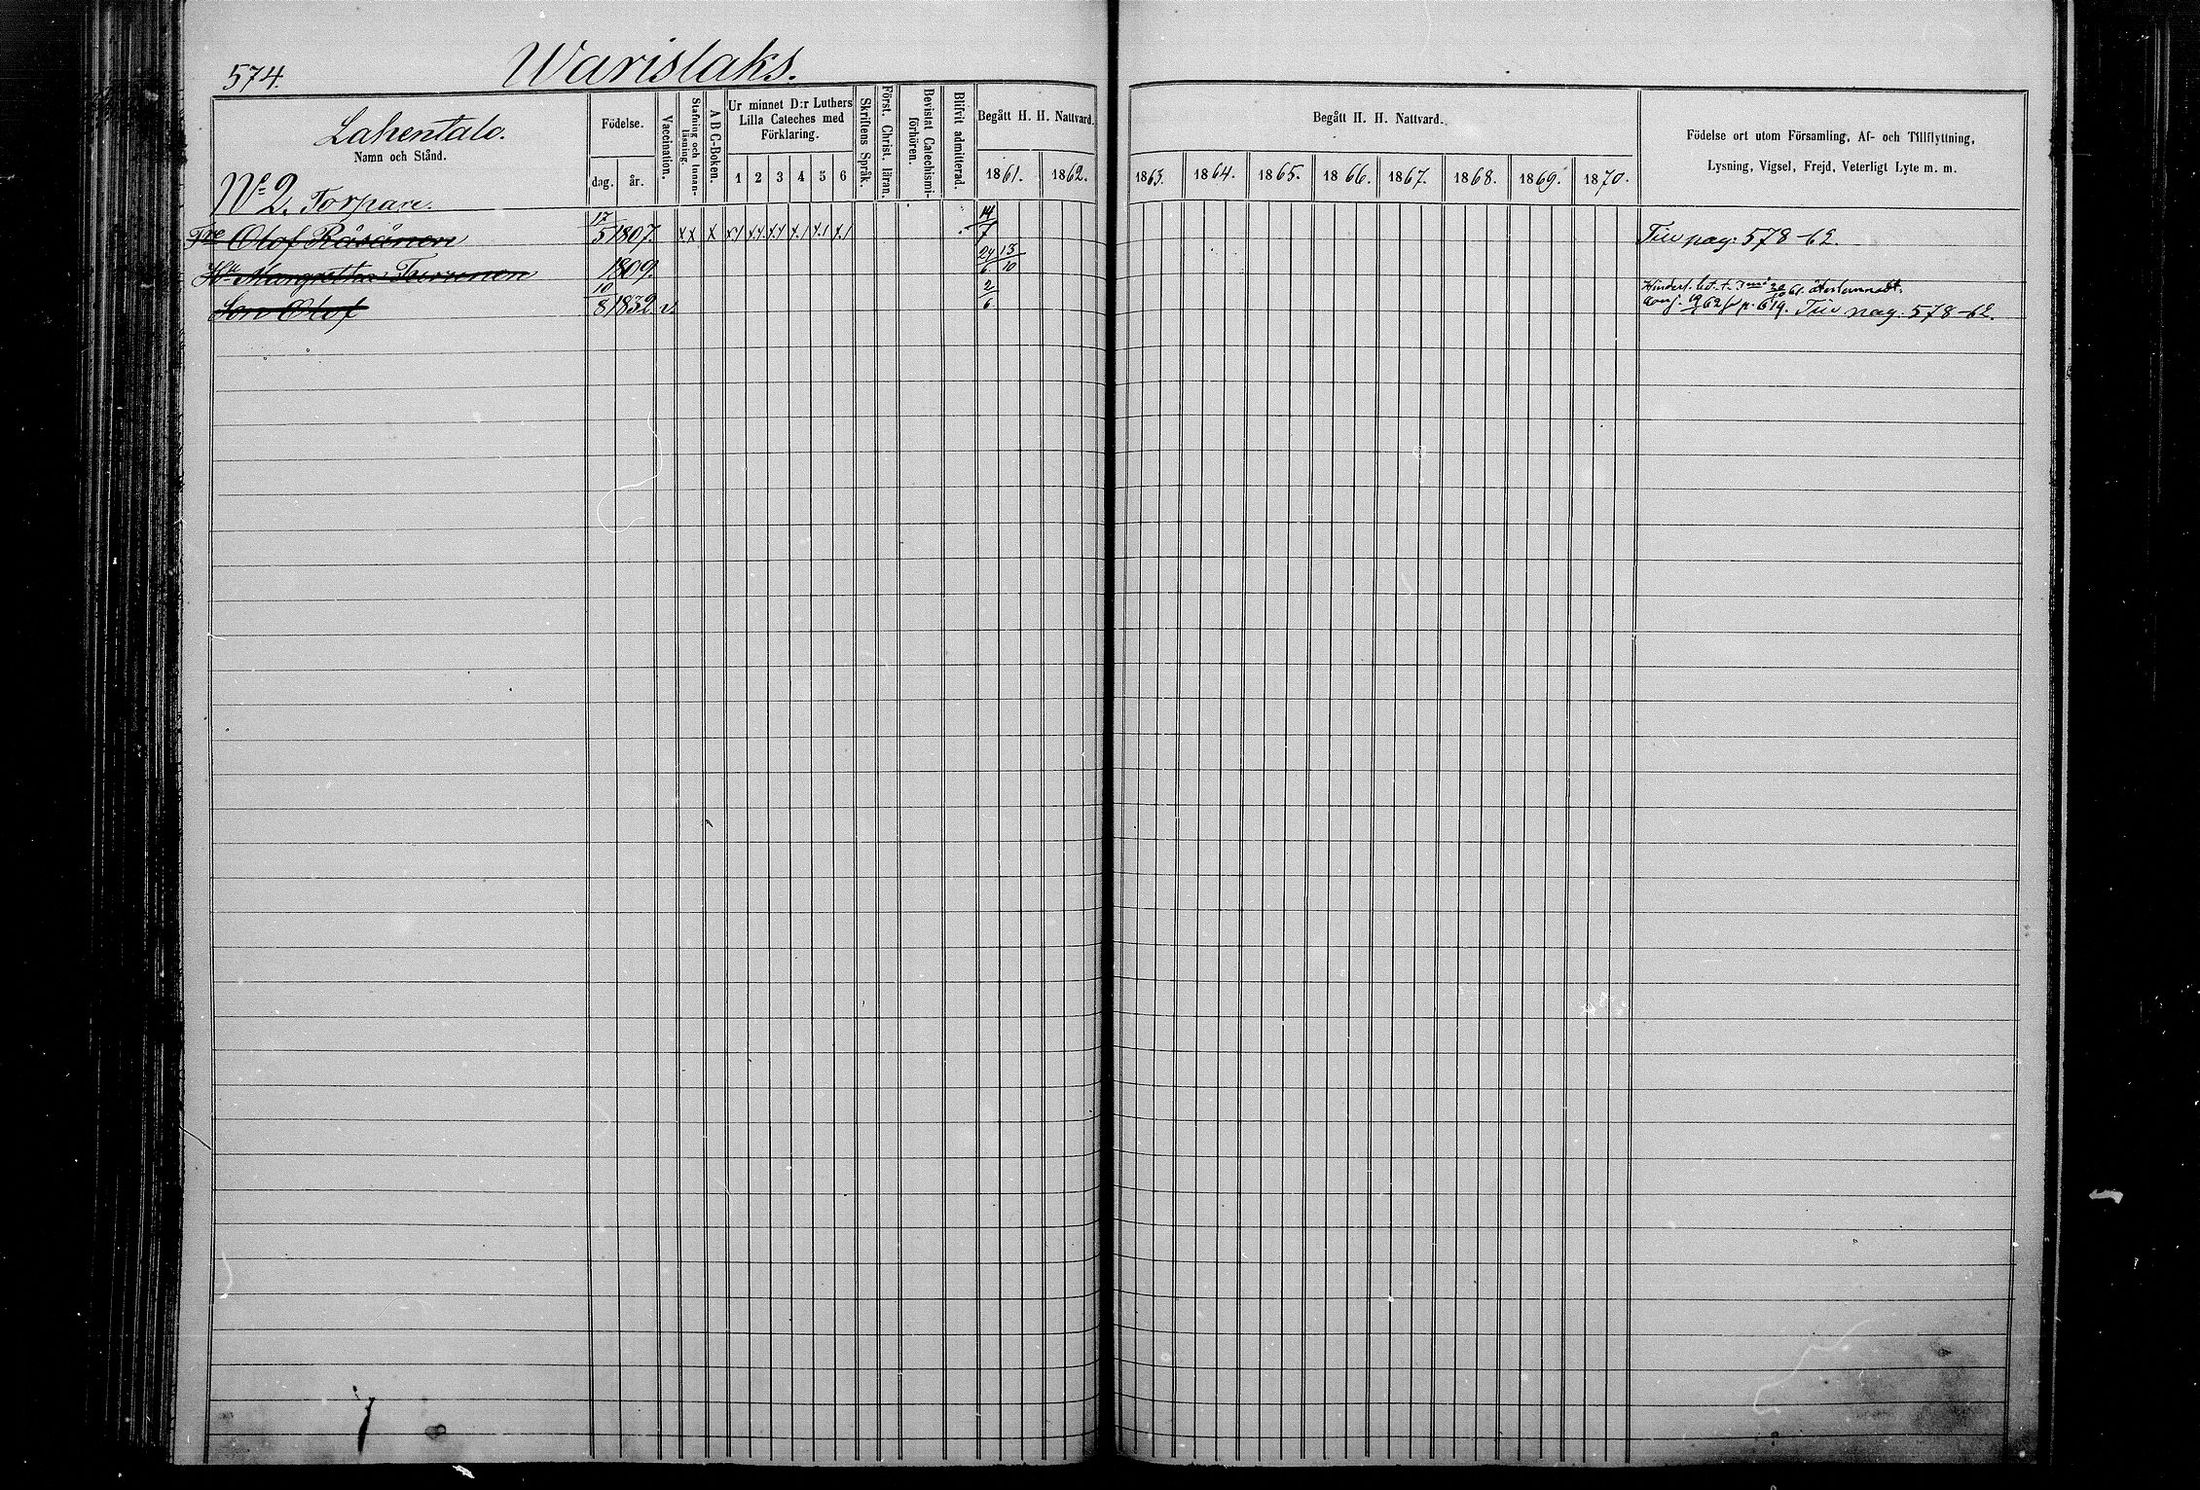 574.
Warislaks.
Lahentalo.
Namn och Stånd.
Födelse.
dag. år.
Vaccination.
Stafning och Innan-
läsning.
A B C-Boken.
Ur minnet D:r Luthers
Lilla Cateches med
Förklaring.
1 2 3 4 5 6
Skriftens Språk.
Först. Christ. läran.
Bevistat Catechismi-
förhören.
Blifvit admitterad.
Begått H. H. Nattvard.
1861. 1862.
Begått H. H. Nattvard.
1863. 1864. 1865. 1866. 1867. 1868. 1869. 1870.
Födelse ort utom Församling, Af- och Tillflyttning,
Lysning, Vigsel, Frejd, Veterligt Lyte m. m.
No 2. Torpare.
Olof Räsänen 17/5 1807. x x x 14/7 pag. 578-62.
Hu Margretha 1809. 24/6 13/10
Son Olof 10/8 1832 v. 2/6 pag. 578-62.